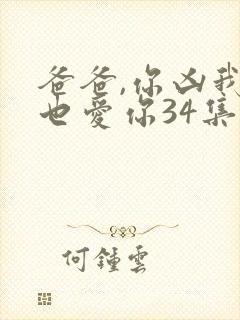 爸爸,你凶我
也爱你34集
何鍾雲